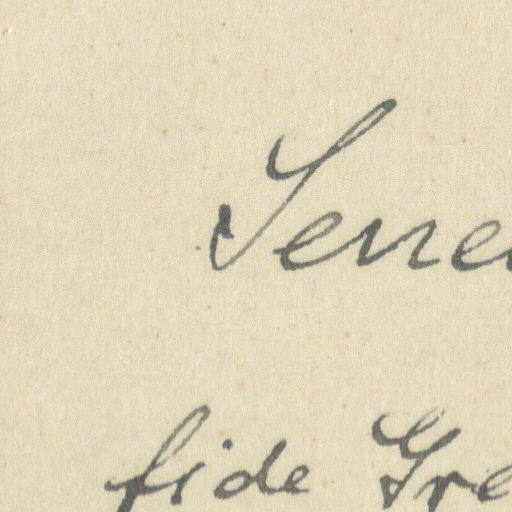 Sene
fide Gre